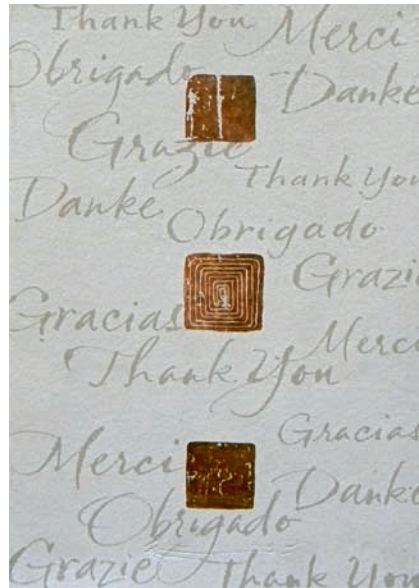 Thank You
Merci
Obrigado
Danke
Grazie
Thank You
Danke
Obrigado
Grazie
Gracias
Merci
Thank You
Gracias
Merci
Danke
Obrigado
Grazie
Thank You